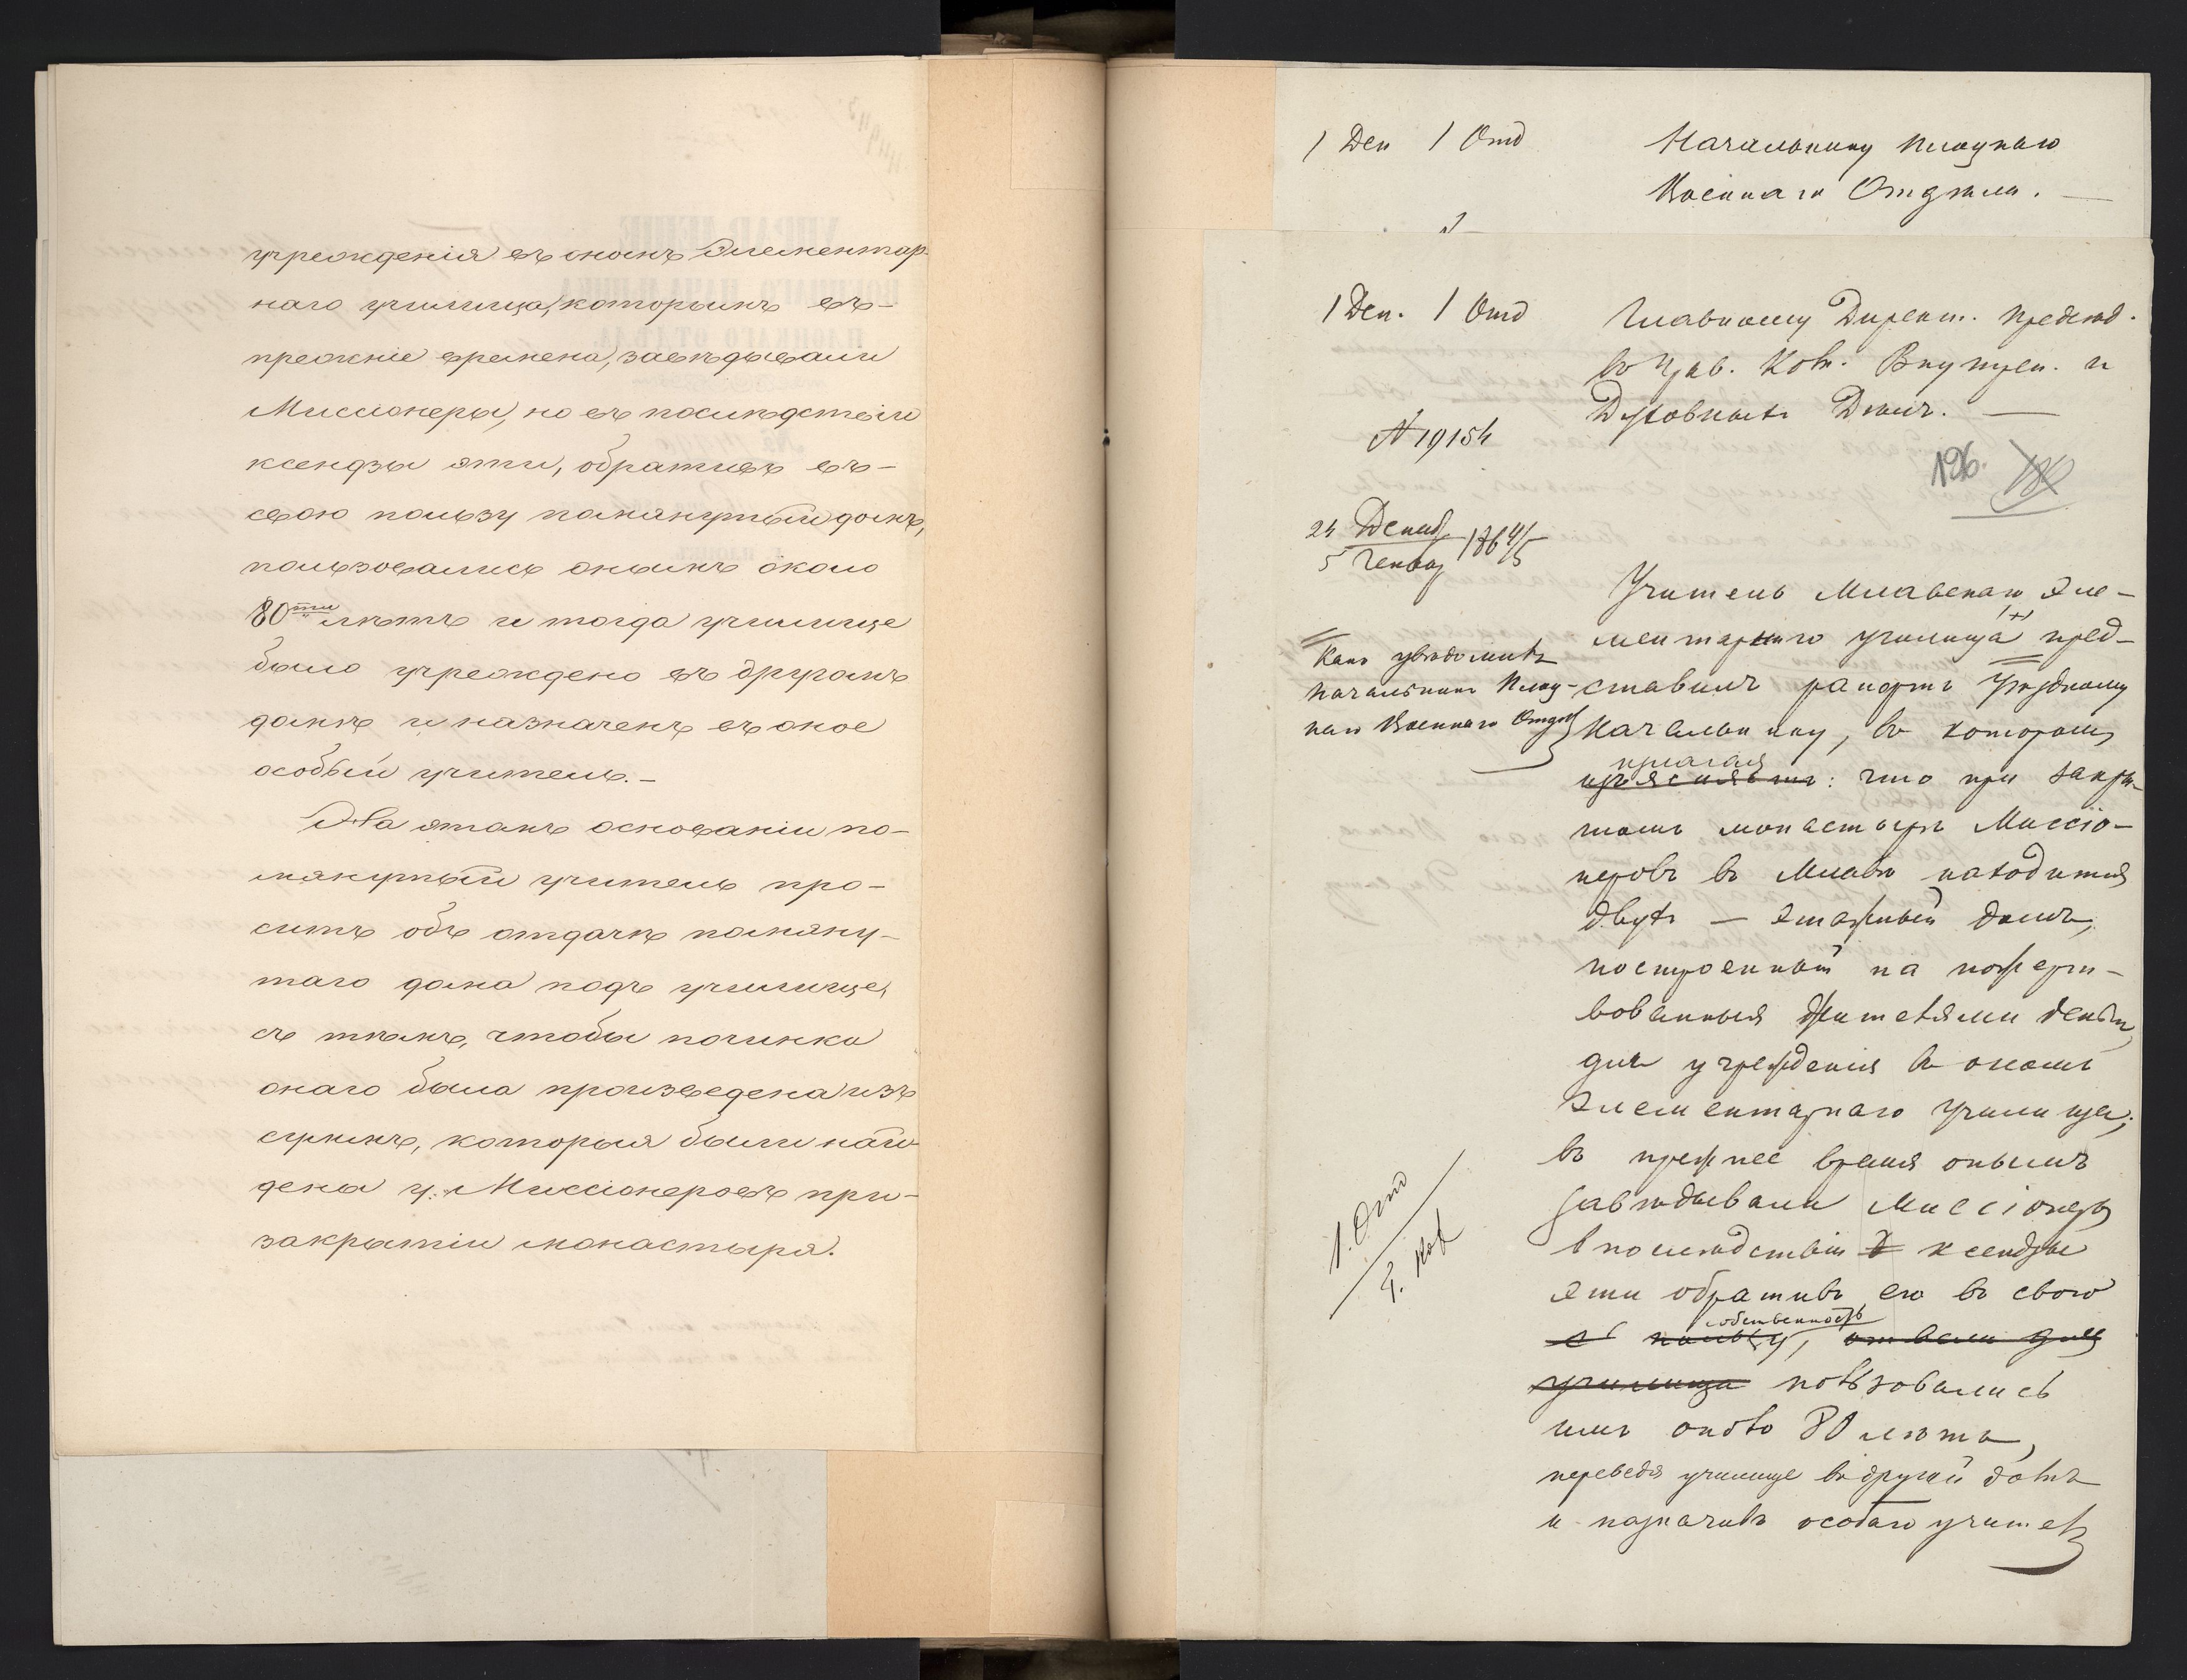 учрежденія въ ономъ Элементар-
наго училища, которымъ въ-
прежніе времена, завѣдывали
Миссіонеры, но въ послѣдствіи
ксендзы эти, обративъ въ-
свою пользу помянутый домъ,
пользовались онымъ около
80ти лѣтъ и тогда училище
было учреждено въ другомъ
домѣ и назначенъ въ оное
особый учитель. —
На этомъ основаніи по-
мянутый учитель про-
ситъ объ отдачѣ помяну-
таго дома подъ училище,
съ тѣмъ, чтобы починка
онаго была произведена изъ
суммъ, которыя были най-
дены у Миссіонеровъ при-
закрытіи монастыря.
1 Деп 1 Отд
Начальнику Плоцкаго
Военнаго Отдѣла. —
1 Деп. 1 Отд
Главному Директ. Предсѣд.
въ Прав. Ком. Внутрен. и
Духовныхъ Дѣлъ. —
N 19154
196. 180
24 Декаб
5 Генвар 1864/5
Учитель Млавскаго Эле-
ментарнаго училища пред-
Какъ увѣдомилъ
Начальникъ Плоц-
каго Военнаго Отдѣл
ставилъ рапортъ Уѣздному
Начальнику, въ которомъ
изъяснялъ: что при закры-
томъ монастырѣ Миссіо-
неровъ въ Млавѣ находится
двухъ — этажный домъ,
построенный на пожертво-
вованныя жителями деньги,
для учрежденія въ ономъ
Элементарнаго училища;
въ прежнее время онымъ
завѣдывали Миссіонеры
впослѣдствіи ксендзы
эти обративъ его въ свою
собственность
пользу, отвели для
училища пользовались
имъ около 80 лѣтъ,
переведя училище въ другой домъ
и назначивъ особаго учителя
1. Отд